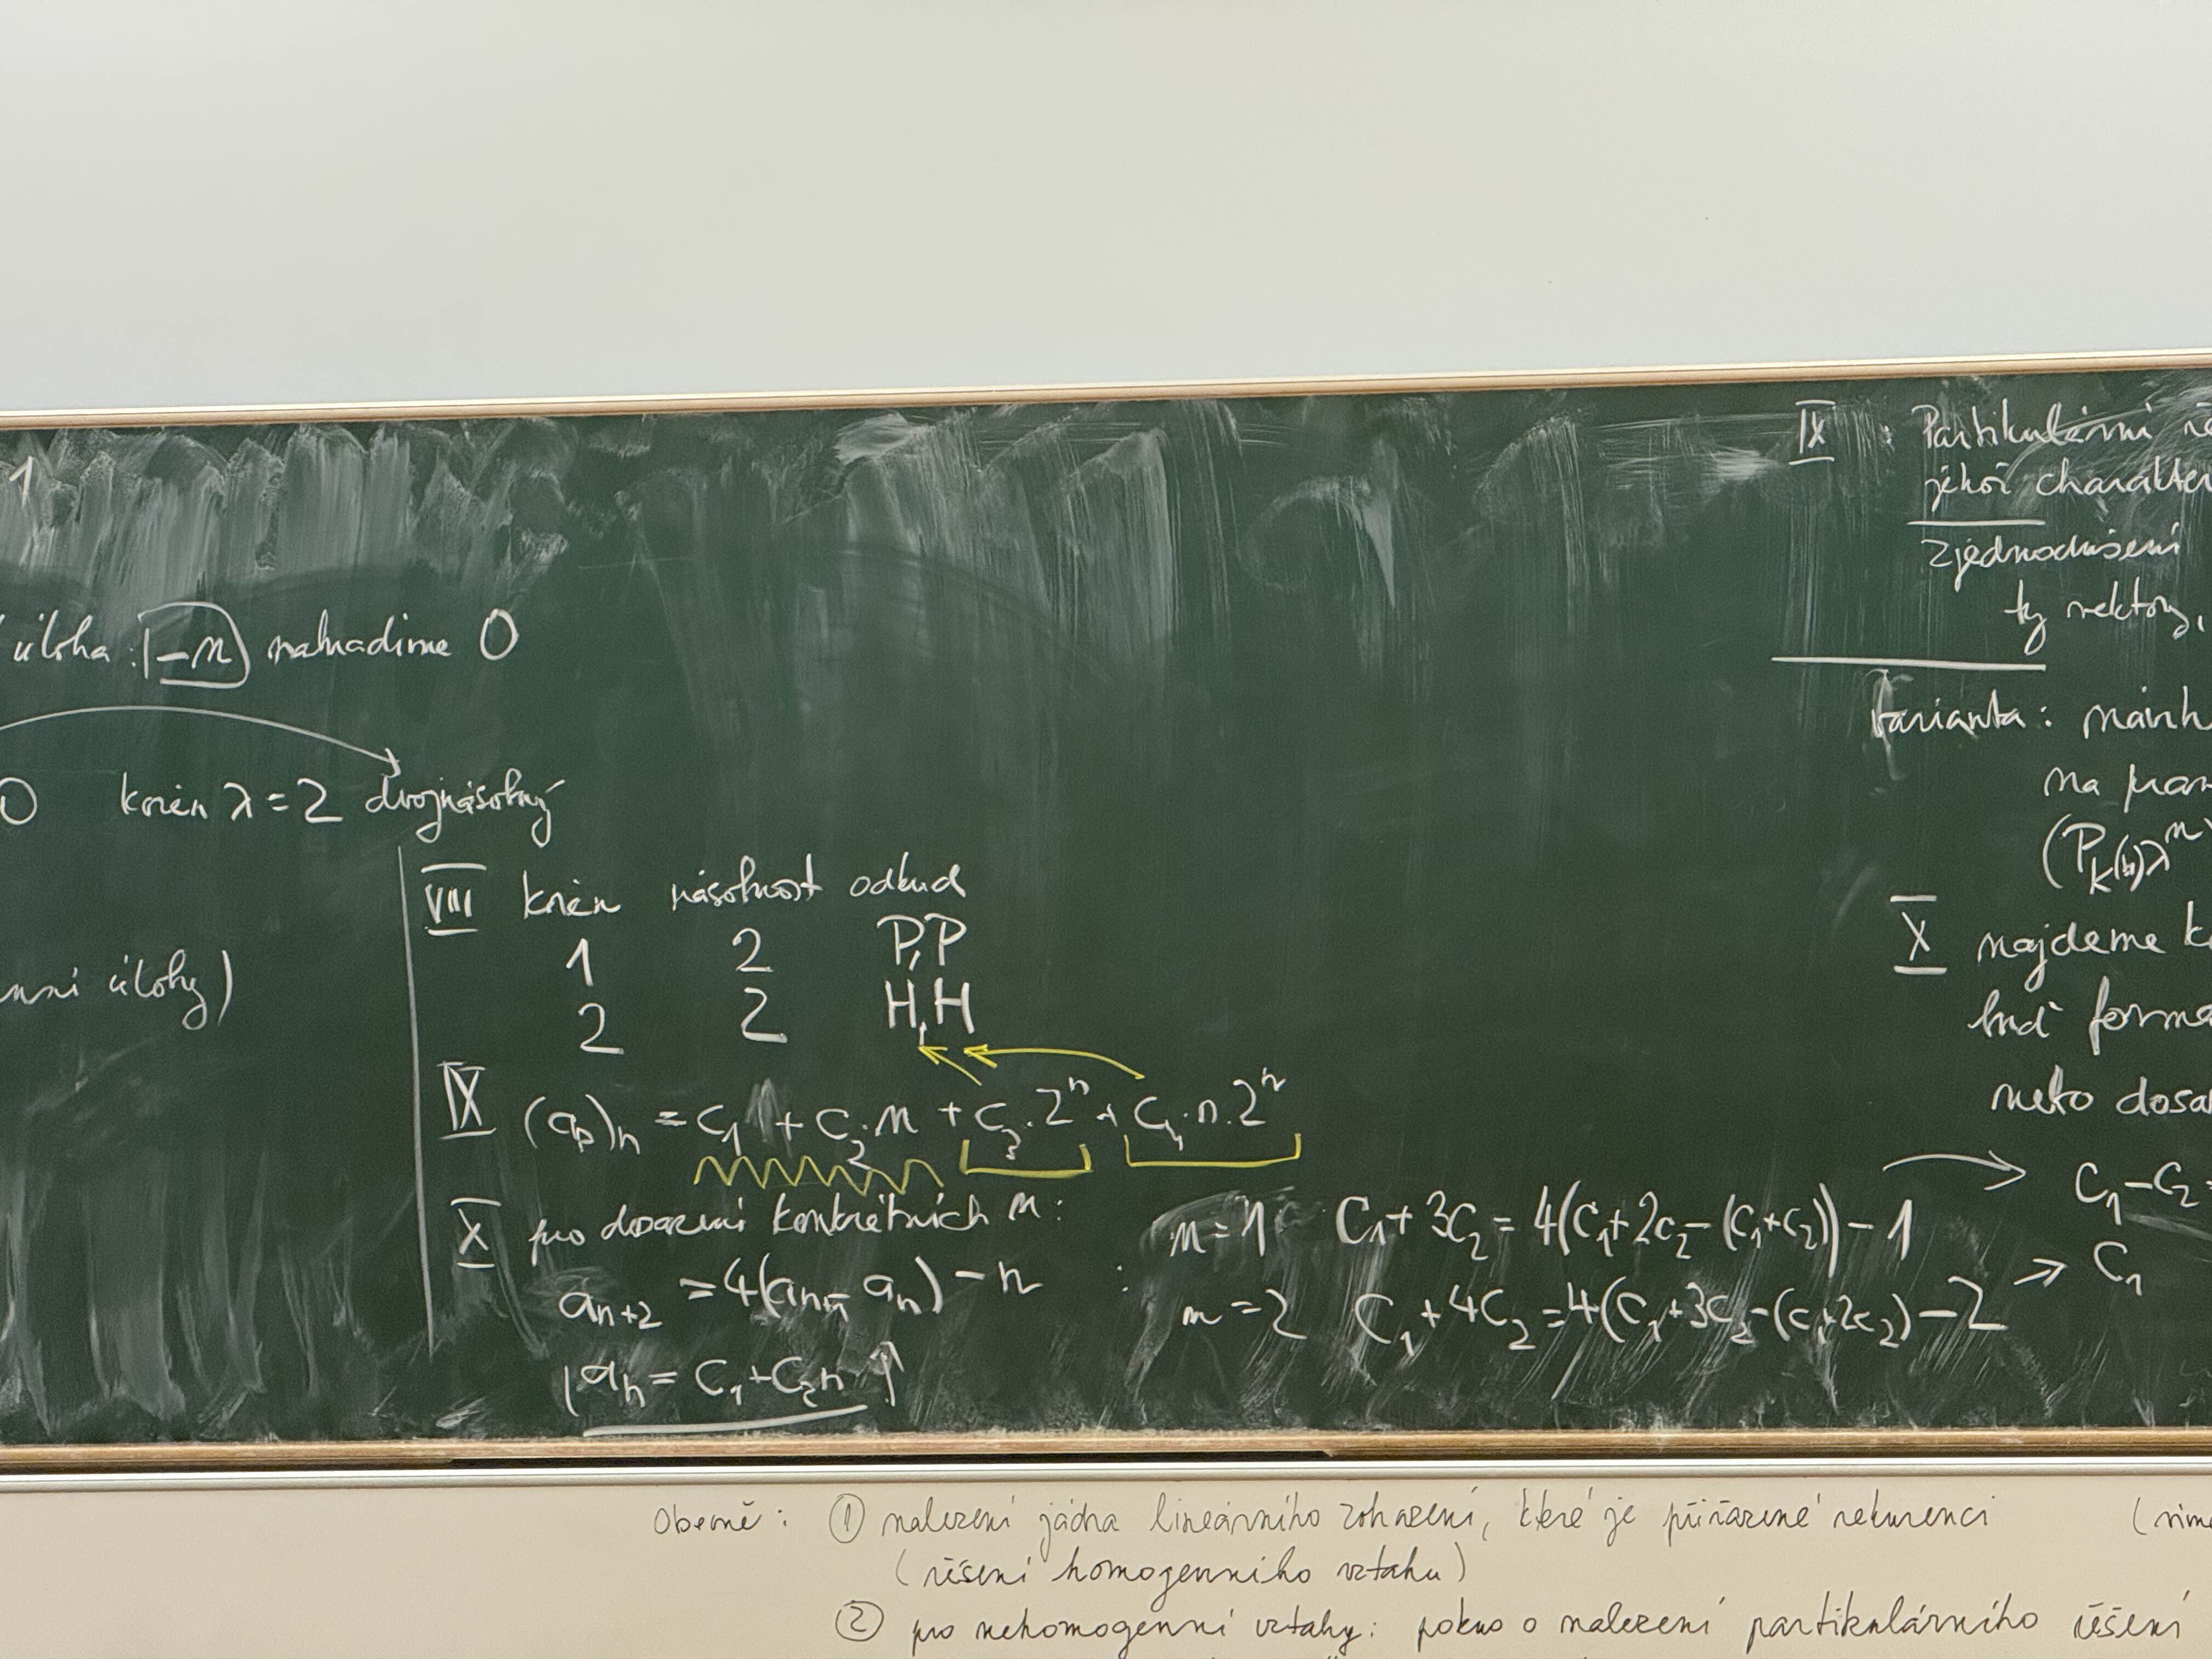 1
úloha: -n nahradíme 0
0 kořen λ = 2 dvojnásobný
úlohy)
VIII kořen násobnost odkud
1 2 P,P
2 2 H,H
IX (a_p)_n = c_1 + c_2·n + c_3·2^n + c_4·n·2^n
X pro dosazení konkrétních n:
a_{n+2} = 4(a_{n+1} - a_n) - n :
a_n = c_1 + c_2 n
n=1 c_1 + 3c_2 = 4(c_1 + 2c_2 - (c_1 + c_2)) - 1 → c_1 - c_2
n=2 c_1 + 4c_2 = 4(c_1 + 3c_2 - (c_1 + 2c_2) - 2 → c_1
IX Partikulární
jehož
zjednodušení
ty vektory,
Varianta:
na
(P_k(n)λ^n
X najdeme
buď
nebo
Obecně: ① nalezení jádra lineárního zobrazení, které je přiřazené rekurenci
(řešení homogenního vztahu)
② pro nehomogenní vztahy: pokus o nalezení partikulárního řešení